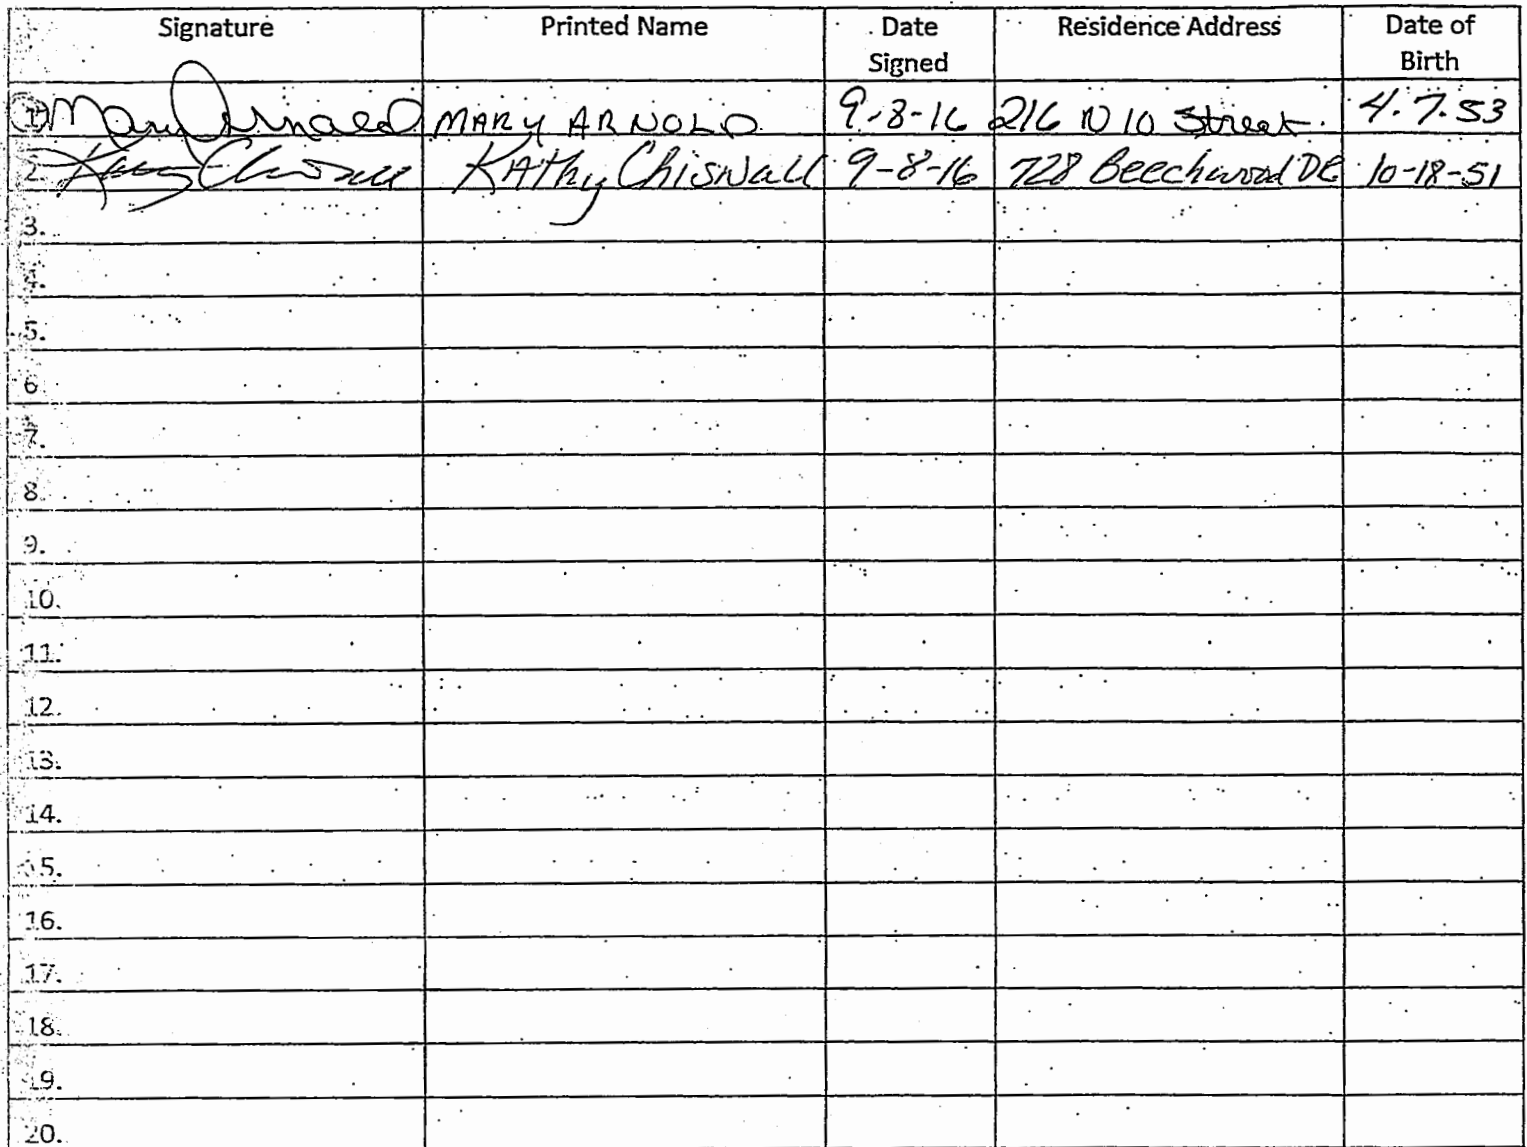 Signature Printed Name Date Signed Residence Address Date of Birth
1. Mary Arnold MARY ARNOLD 9-8-16 216 N 10 Street. 4.7.53
2. Kathy Chiswall 9-8-16 728 Beechwood DR 10-18-51
3.
4.
5.
6.
7.
8.
9.
10.
11.
12.
13.
14.
15.
16.
17.
18.
19.
20.